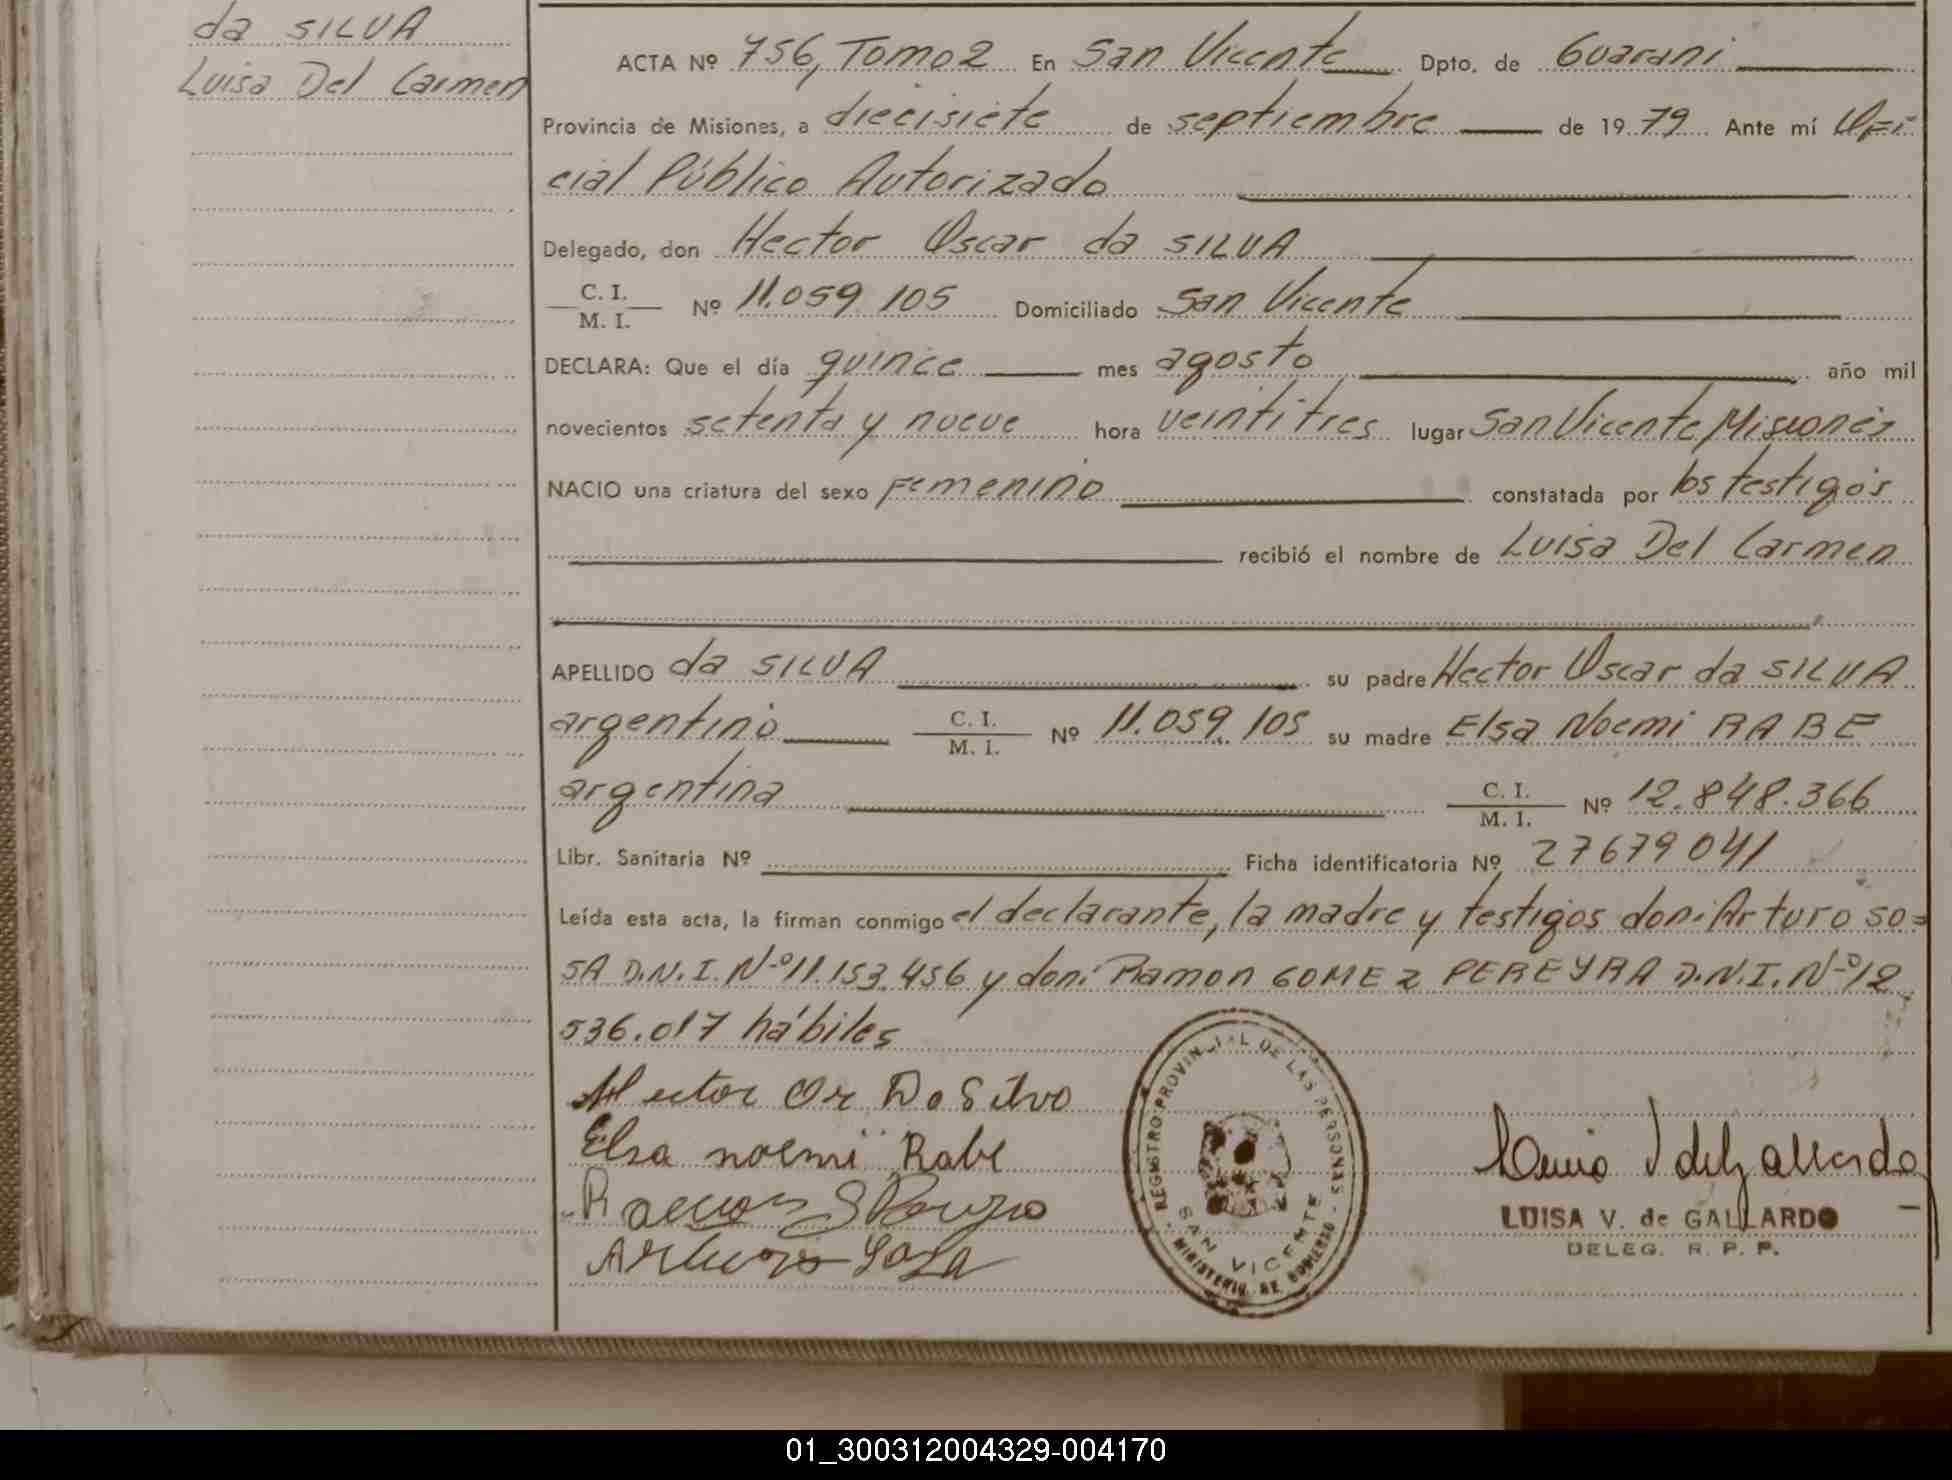 da SILVA
Luisa Del Carmen
ACTA Nº 756, Tomo 2 En San Vicente Dpto. de Guarani
Provincia de Misiones, a diecisiete de septiembre de 1979 Ante mí Ofi
cial Público Autorizado
Delegado, don Hector Oscar da SILVA
C. I.
M. I. Nº 11.059.105 Domiciliado San Vicente
DECLARA: Que el día quince mes agosto año mil
novecientos setenta y nueve hora veintitres lugar San Vicente, Misiones
NACIO una criatura del sexo Femenino constatada por los testigos
recibió el nombre de Luisa Del Carmen
APELLIDO da SILVA su padre Hector Oscar da SILVA
argentino C. I. M. I. Nº 11.059.105 su madre Elsa Noemi RABE
argentina C. I. M. I. Nº 12.848.366
Libr. Sanitaria Nº Ficha identificatoria Nº 27679041
Leída esta acta, la firman conmigo el declarante, la madre y testigos don: Arturo SO=
SA D.N.I. Nº 11.153.456 y don: Ramon GOMEZ PEREYRA D.N.I. Nº 12
536.017 hábiles
Hector Os Da Silva
Elsa noemi Rabe
Arturo Sosa
REGISTRO PROVINCIAL DE LAS PERSONAS
SAN VICENTE
MINISTERIO DE GOBIERNO
LUISA V. de GALLARDO
DELEG. R. P. P.
01_300312004329-004170